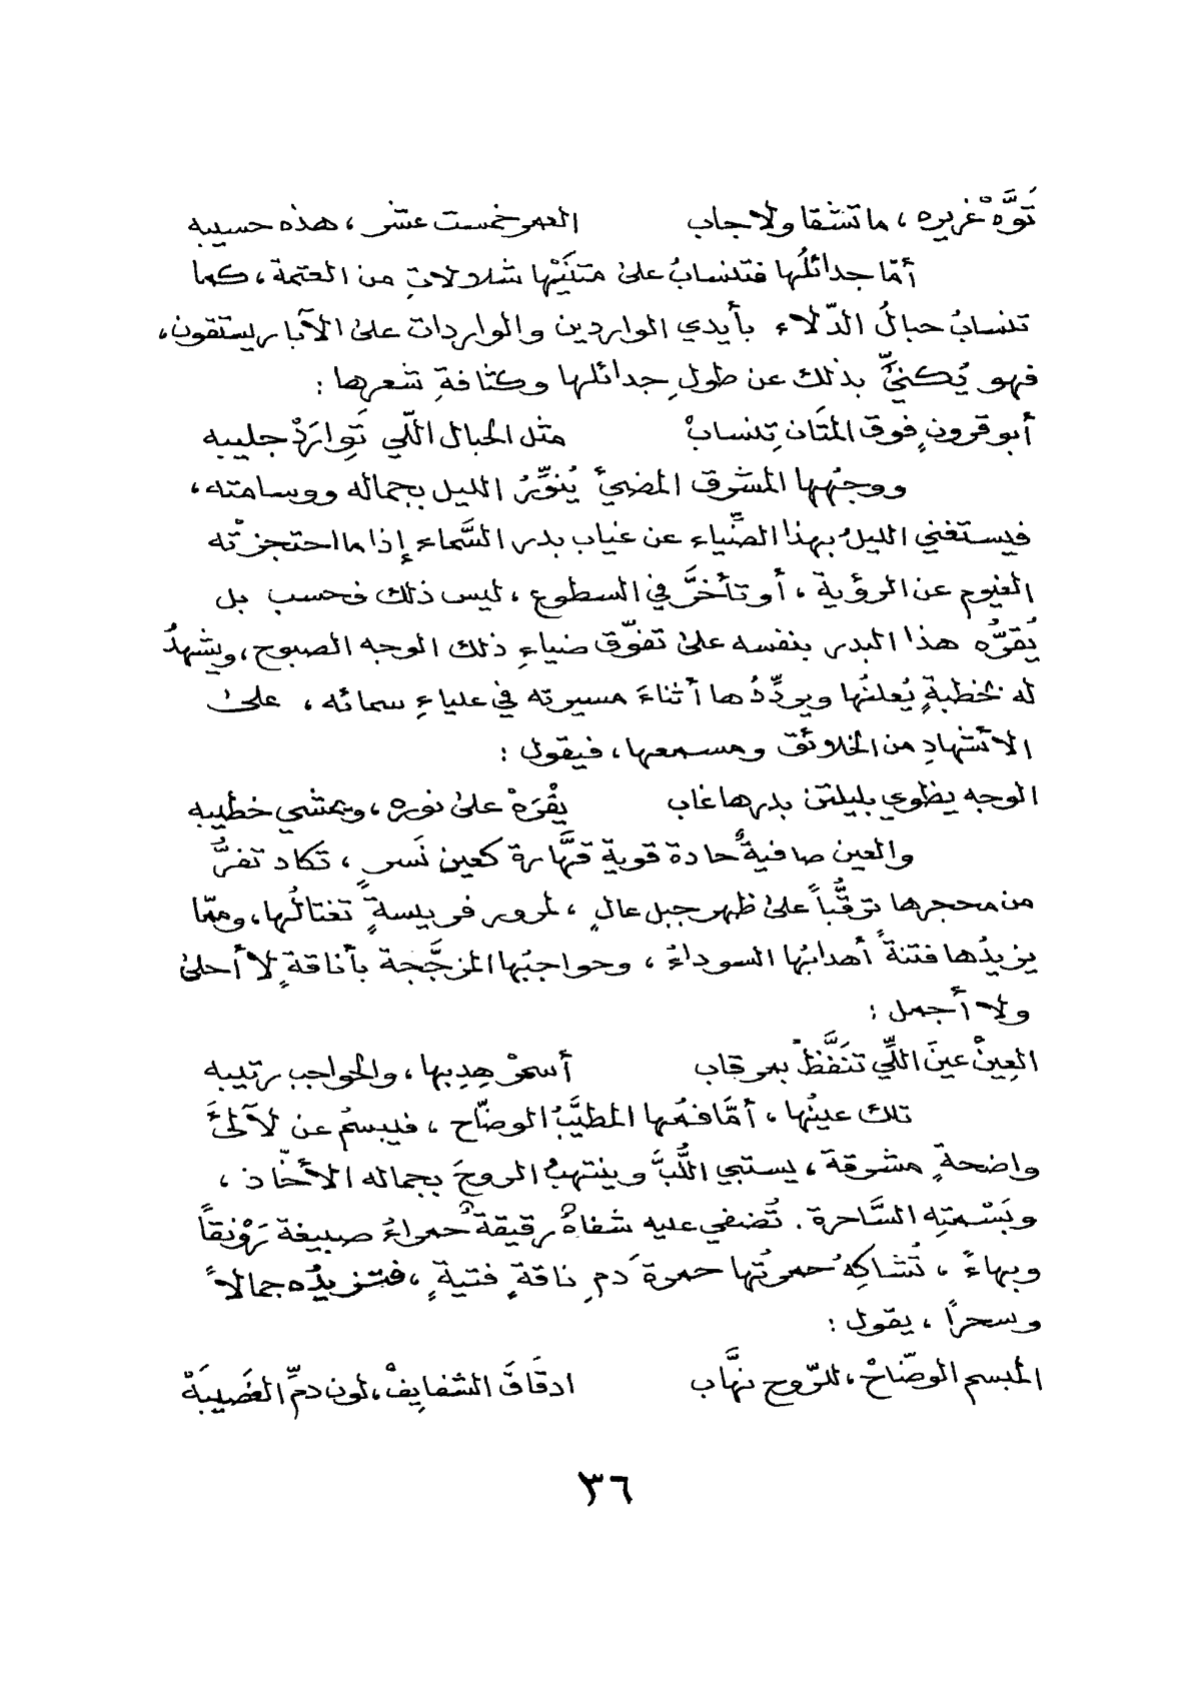 تَوَّهْ غريره ، ما تشقا ولا جاب العمر خمست عشر ، هذه حسيبه
أمّا جدائلُها فتنسابُ على متنَيْها شلالاتٍ من العتمة ، كما
تنسابُ حبالُ الدّلاء بأيدي الواردين والواردات على الآبار يستقون ،
فهو يُكنيِّ بذلك عن طولِ جدائلها وكثافةِ شعرها :
أبو قرونٍ فوق المتَان تِنسابْ مثل الحبال اللّي تَوِارَدْ جليبه
ووجهُها المشوق المضيءُ يُنوِّرُ الليل بجماله ووسامته ،
فيستغني الليلُ بهذا الضِّياء عن غياب بدر السَّماء إذا ما احتجزتْه
الغيوم عن الرؤية ، أو تأخرَّ في السطوع ، ليس ذلك فحسب بل
يُقرُّه هذا البدر بنفسه على تفوّق ضياءِ ذلك الوجه الصبوح ، ويشهدُ
له بخطبةٍ يُعلنُها ويردِّدُها أثناءَ مسيرته في علياءِ سمائه ، على
الأشهادِ من الخلائق ومسمعها ، فيقول :
الوجه يظوي بليلتن بدرها غاب يِقْرَهْ على نوره ، ويمشي خطيبه
والعين صافيةٌ حادة قوية قهَّارة كعين نَسرٍ ، تكاد تفرُّ
من محجرها ترقُّباً على ظهر جبل عالٍ ، لمرور فريسةٍ تغتالُها ، وممّا
يزيدُها فتنةً أهدابُها السوداءُ ، وحواجبُها المزجَّجة بأناقةٍ لا أحلى
ولا أجمل :
العِينْ عينَ اللّي تنَفَّظْ بمرقاب أسمرْ هِدِبها ، والحواجب رتيبه
تلك عينُها ، أمَّا فمُها المطيَّبُ الوضّاح ، فيبسمُ عن لآلئَ
واضحةٍ مشرقة ، يستبي اللُّبَّ وينتهبُ الروحَ بجماله الأخّاذ ،
وبَسْمتِه السَّاحرة . تُضفي عليه شفاهٌ رقيقةٌ حمراءُ صبيغة رَوْنقاً
وبهاءً ، تُشاكِهُ حمرتُها حمرةَ دمِ ناقةٍ فتيةٍ ، فتزيدُه جمالاً
وسحراً ، يقول :
المبسم الوضّاحْ ، للرّوح نهَّاب ادقَاقَ الشفايِفْ ، لون دمِّ العَصيبَهْ
٣٦